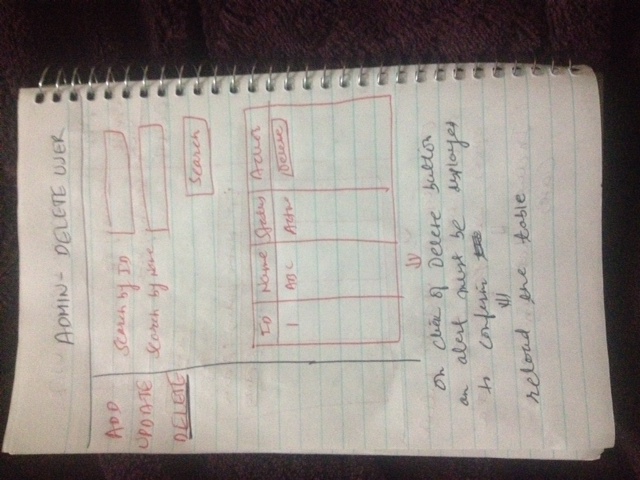 ADMIN - DELETE USER
ADD
UPDATE
DELETE
Search by ID
Search by Name
Search
ID Name Status Action
1 ABC Active Delete
on click of Delete button
an alert must be displayed
to confirm
reload the table